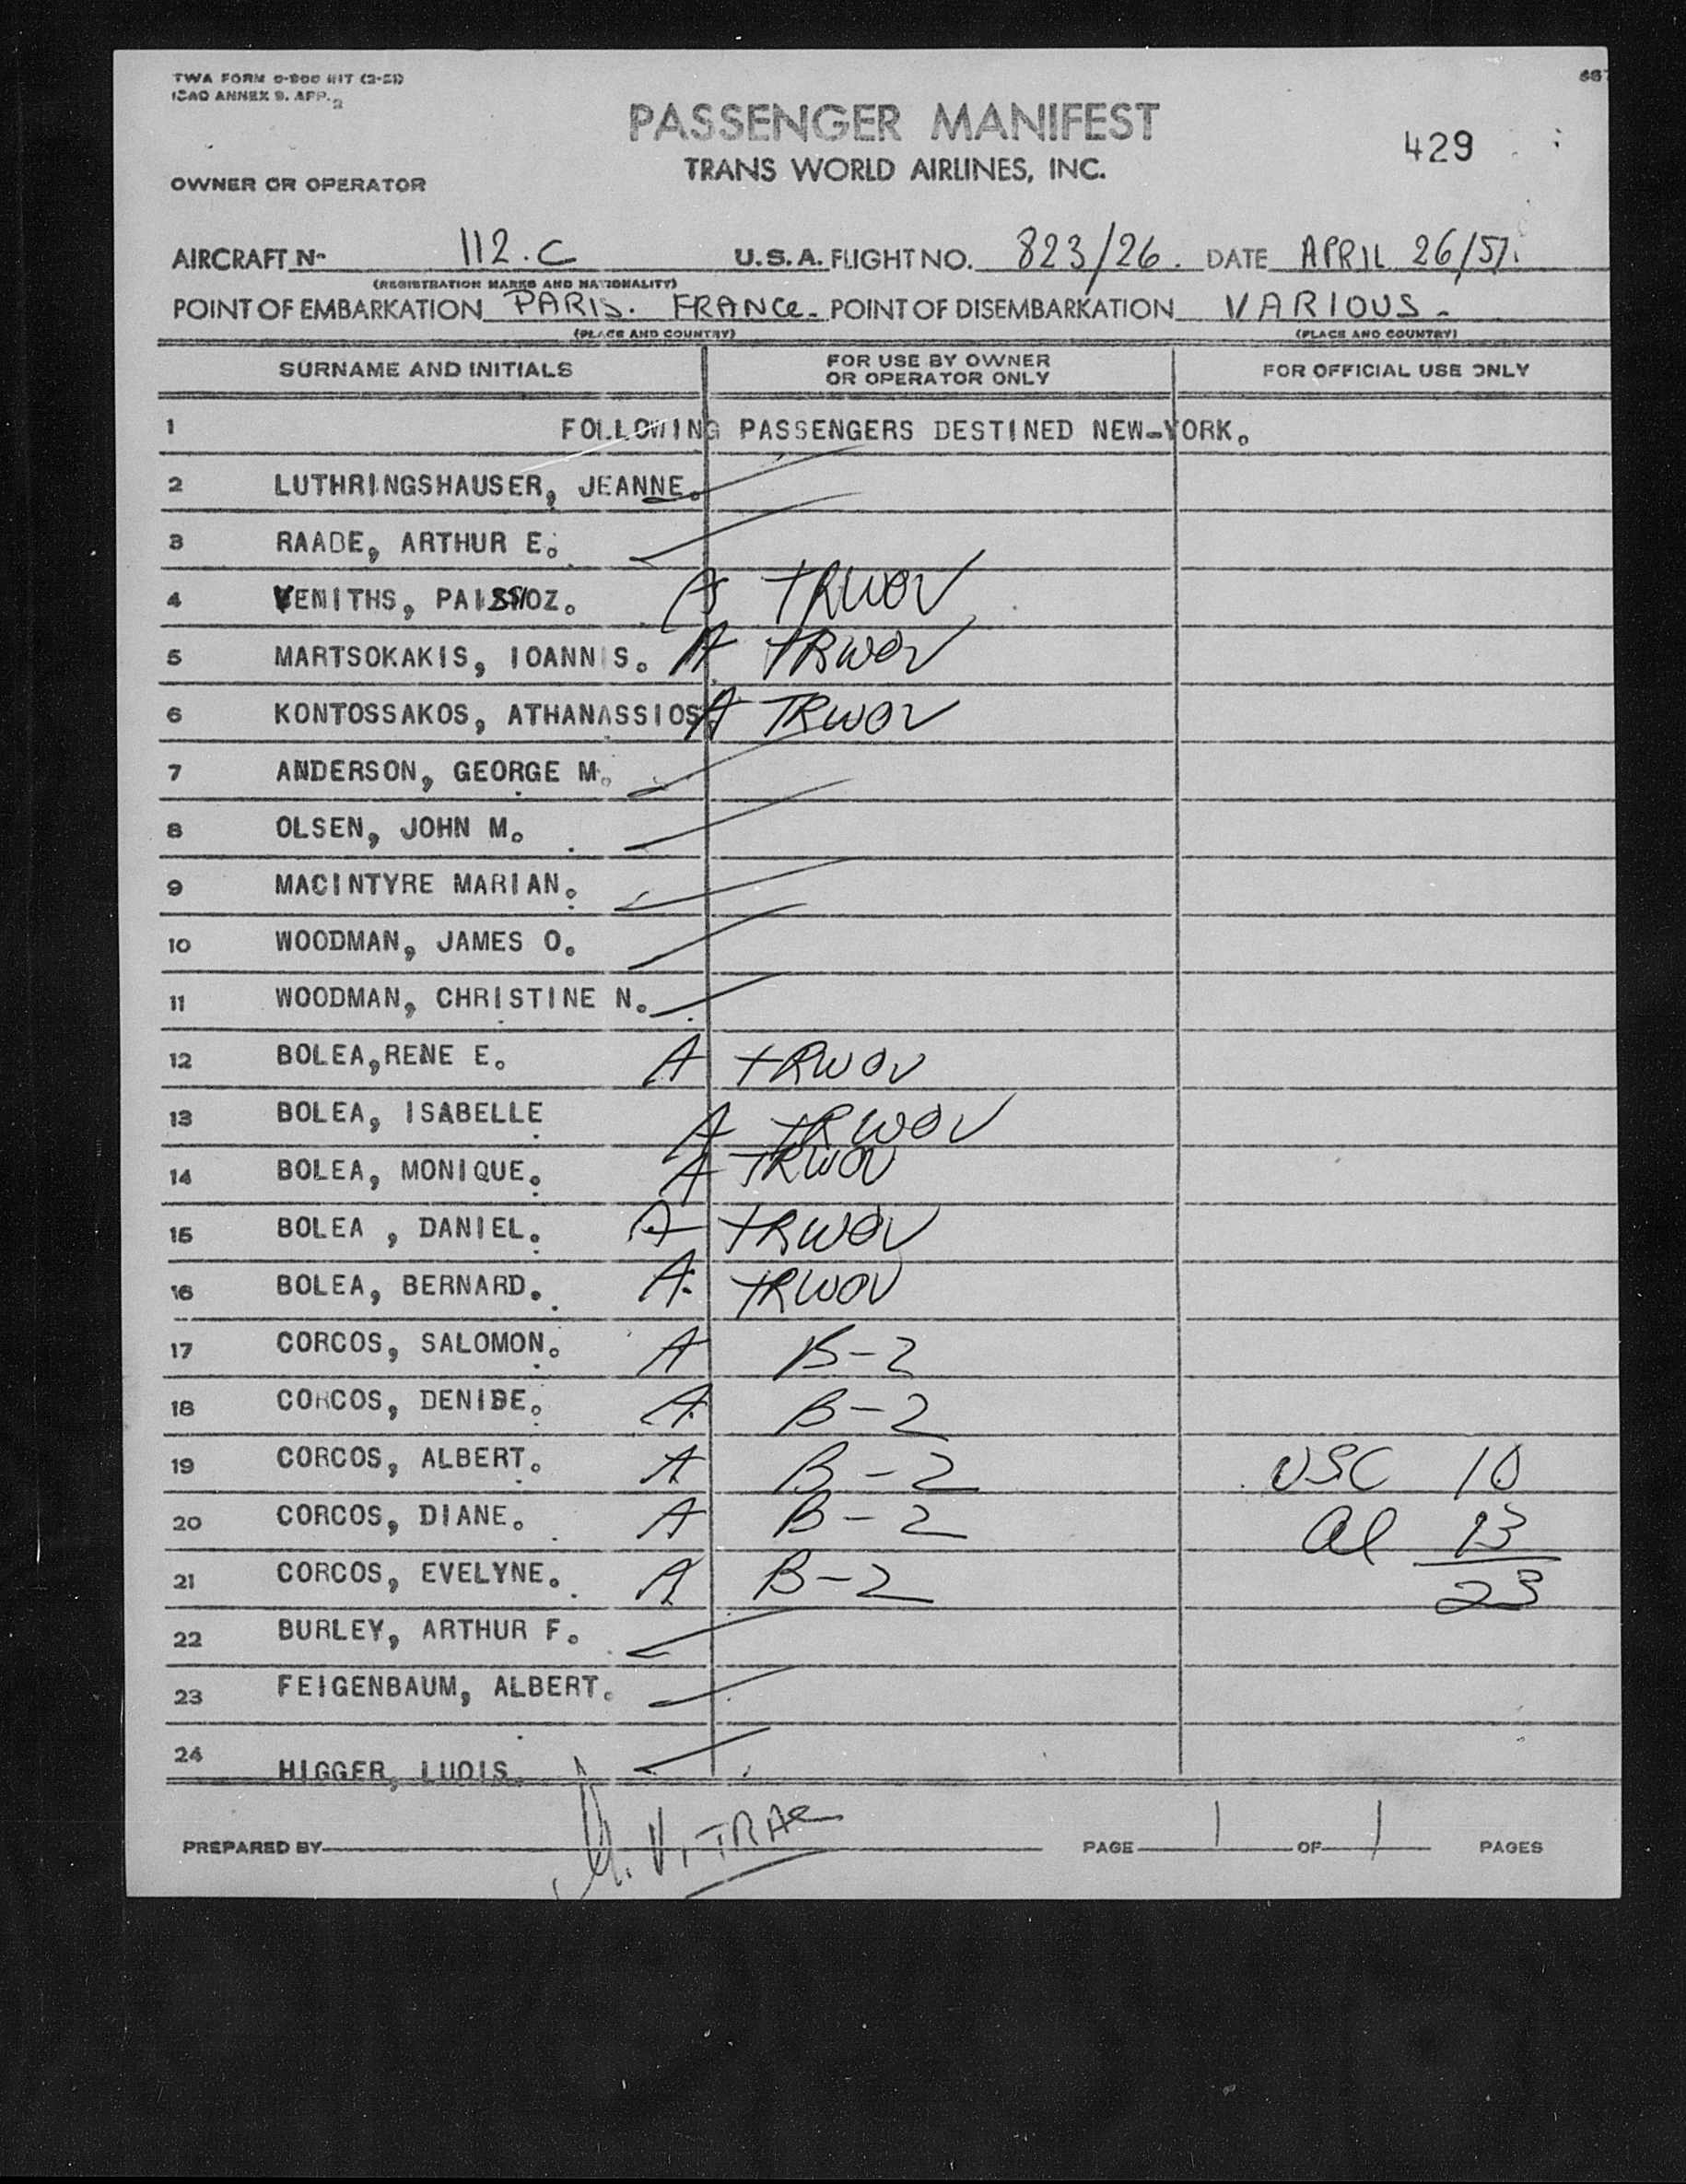 TWA FORM 0-800 INT (2-51)
ICAO ANNEX 9. APP. 2
PASSENGER MANIFEST
429
TRANS WORLD AIRLINES, INC.
OWNER OR OPERATOR
AIRCRAFT Nº 112.C U.S.A. FLIGHT NO. 823/26. DATE APRIL 26/51.
(REGISTRATION MARKS AND NATIONALITY)
POINT OF EMBARKATION PARIS. FRANCE. POINT OF DISEMBARKATION VARIOUS.
(PLACE AND COUNTRY) (PLACE AND COUNTRY)
SURNAME AND INITIALS FOR USE BY OWNER OR OPERATOR ONLY FOR OFFICIAL USE ONLY
1 FOLLOWING PASSENGERS DESTINED NEW-YORK.
2 LUTHRINGSHAUSER, JEANNE.
3 RAADE, ARTHUR E.
4 VENITHS, A TRWOV
5 MARTSOKAKIS, IOANNIS. A TRWOV
6 KONTOSSAKOS, ATHANASSIOS. A TRWOV
7 ANDERSON, GEORGE M.
8 OLSEN, JOHN M.
9 MACINTYRE MARIAN.
10 WOODMAN, JAMES O.
11 WOODMAN, CHRISTINE N.
12 BOLEA,RENE E. A TRWOV
13 BOLEA, ISABELLE A TRWOV
14 BOLEA, MONIQUE. A TRWOV
15 BOLEA , DANIEL. A TRWOV
16 BOLEA, BERNARD. A. TRWOV
17 CORCOS, SALOMON. A B-2
18 CORCOS, DENISE. A B-2
19 CORCOS, ALBERT. A B-2 USC 10
20 CORCOS, DIANE. A B-2 al 13
21 CORCOS, EVELYNE. A B-2 23
22 BURLEY, ARTHUR F.
23 FEIGENBAUM, ALBERT.
24 HIGGER, LUOIS.
PREPARED BY PAGE 1 OF 1 PAGES